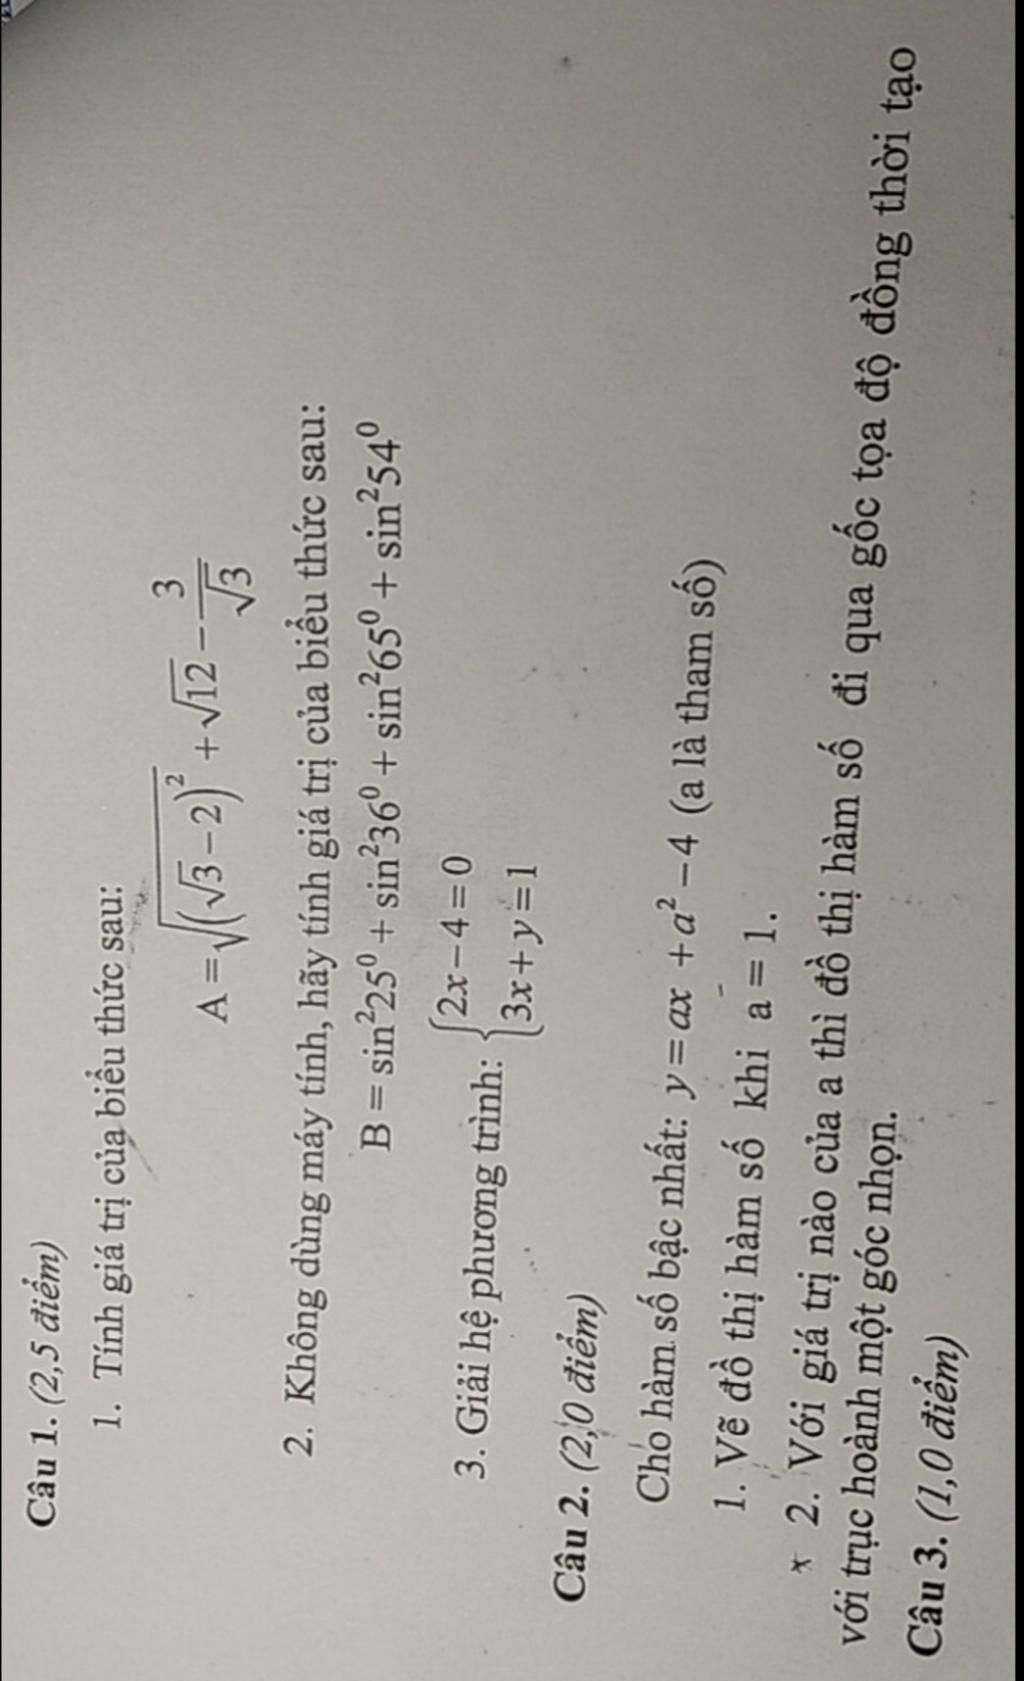 Câu 1. (2,5 điểm)
1. Tính giá trị của biểu thức sau:
A = √((√3 − 2)²) + √12 − 3/√3
2. Không dùng máy tính, hãy tính giá trị của biểu thức sau:
B = sin²25⁰ + sin²36⁰ + sin²65⁰ + sin²54⁰
3. Giải hệ phương trình: { 2x − 4 = 0
3x + y = 1
Câu 2. (2,0 điểm)
Cho hàm số bậc nhất: y = ax + a² − 4 (a là tham số)
1. Vẽ đồ thị hàm số khi a = 1.
x 2. Với giá trị nào của a thì đồ thị hàm số đi qua gốc tọa độ đồng thời tạo
với trục hoành một góc nhọn.
Câu 3. (1,0 điểm)